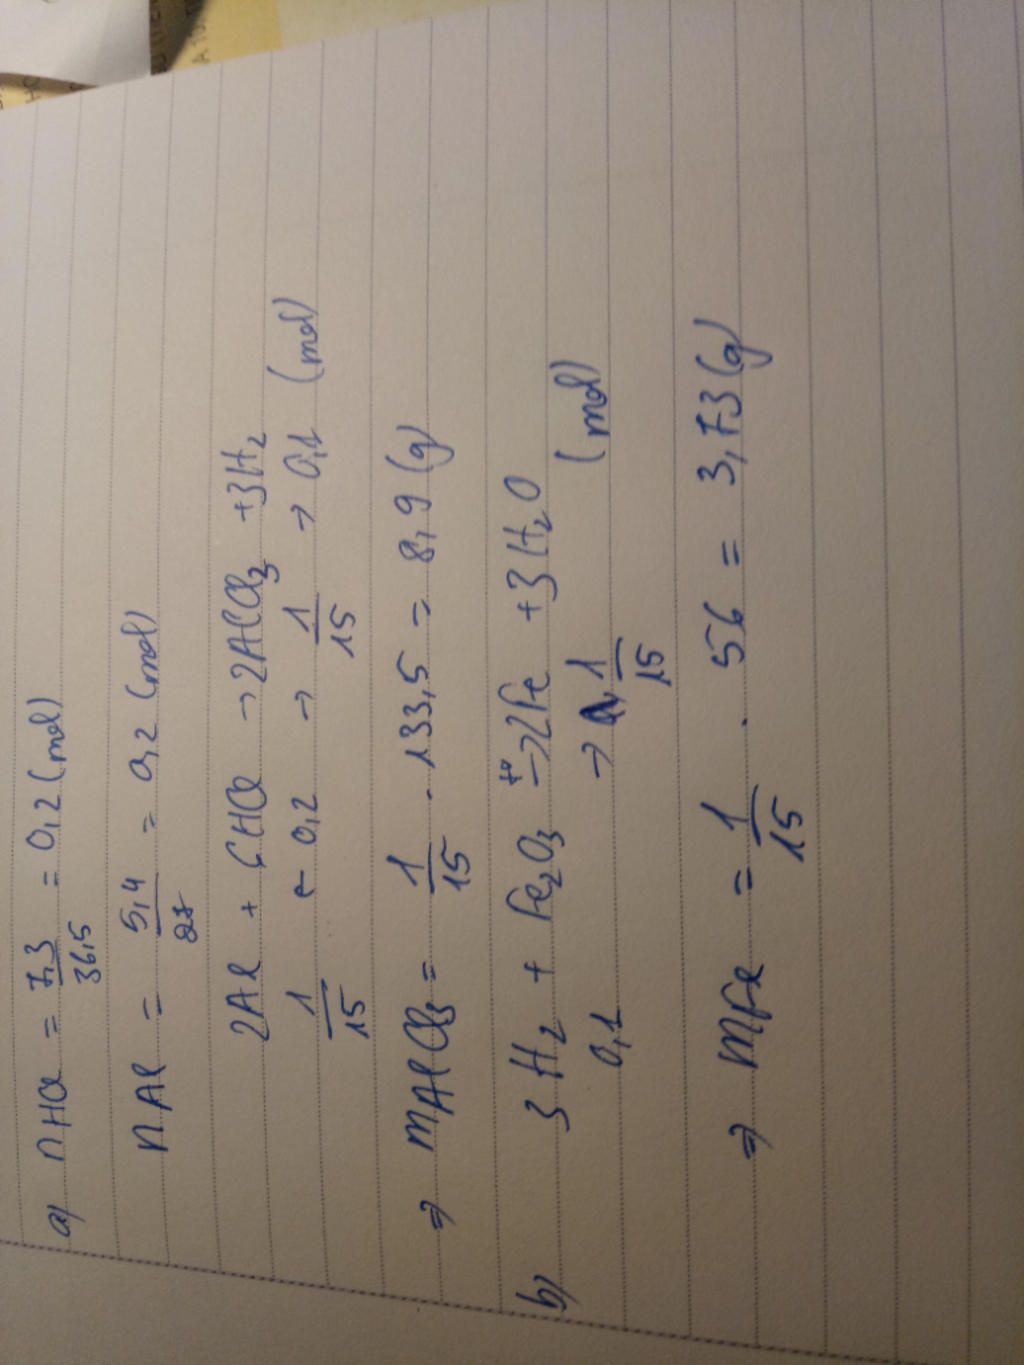 a) nHCl = 7,3/36,5 = 0,2 (mol)
nAl = 5,4/27 = 0,2 (mol)
2Al + 6HCl → 2AlCl₃ + 3H₂
1/15 ← 0,2 → 1/15 → 0,1 (mol)
⇒ mAlCl₃ = 1/15 . 133,5 = 8,9 (g)
b) 3H₂ + Fe₂O₃ t° → 2Fe + 3H₂O
0,1 → 1/15 (mol)
⇒ mFe = 1/15 . 56 = 3,73 (g)